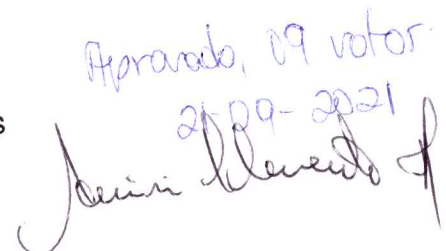 Aprovado, 09 votos.
21-09-2021
s